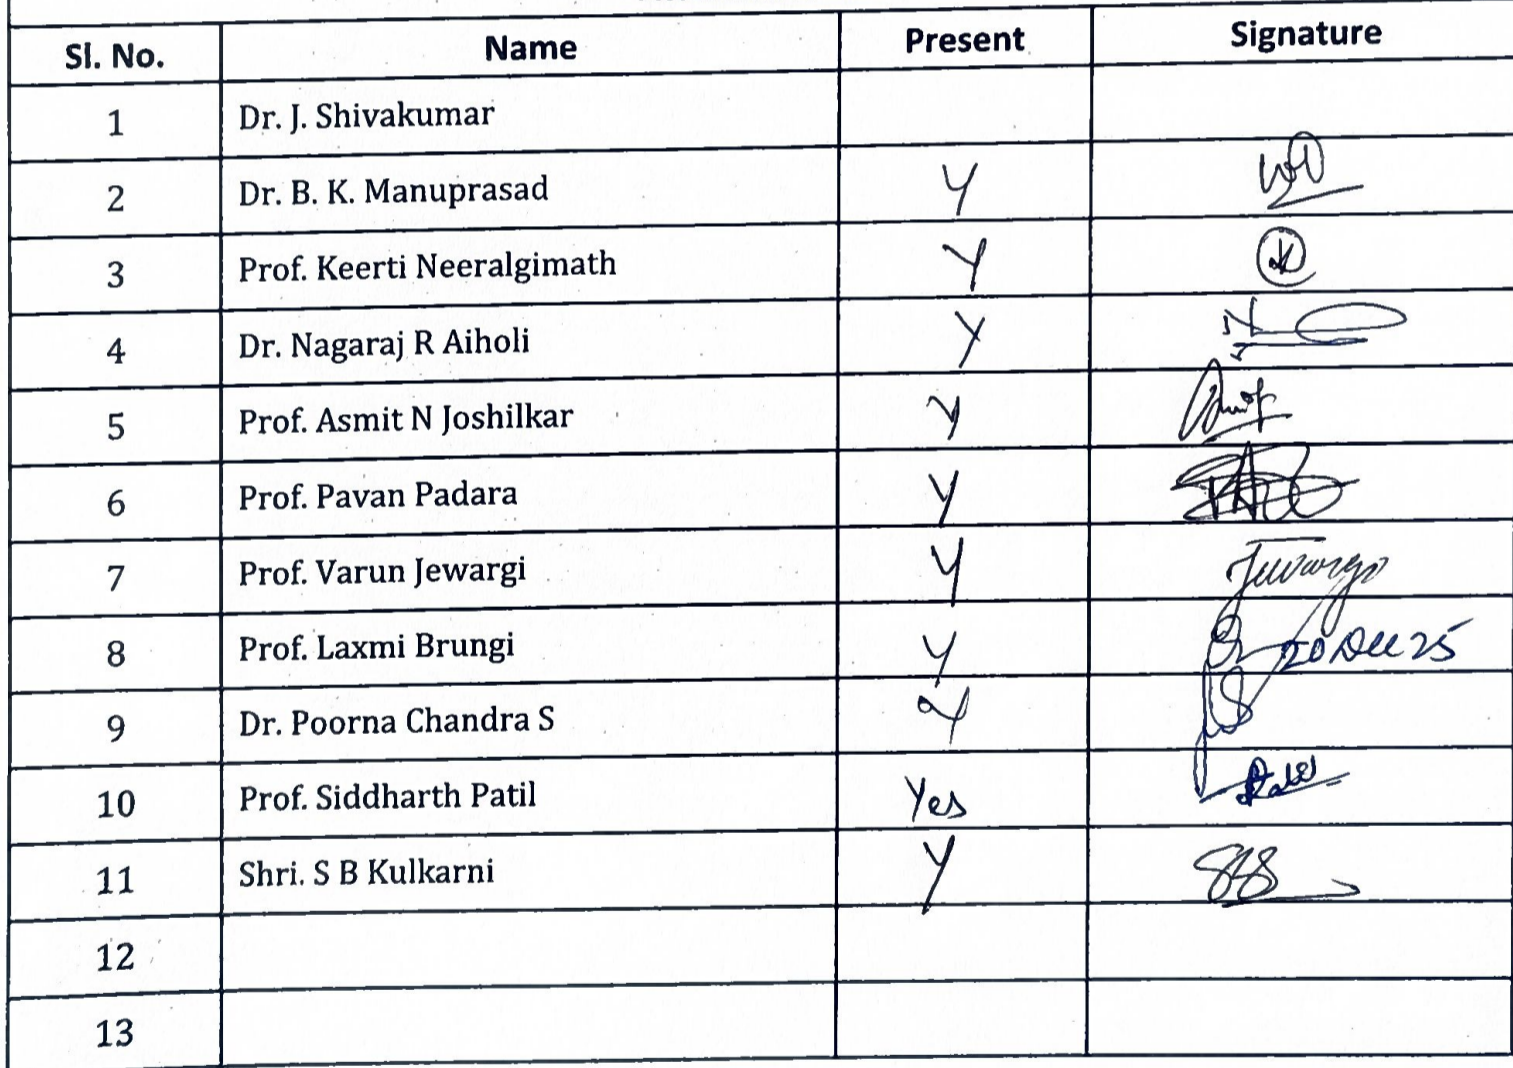 Sl. No. Name Present Signature
1 Dr. J. Shivakumar
2 Dr. B. K. Manuprasad Y
3 Prof. Keerti Neeralgimath Y
4 Dr. Nagaraj R Aiholi Y
5 Prof. Asmit N Joshilkar Y
6 Prof. Pavan Padara Y
7 Prof. Varun Jewargi Y Jewargi
8 Prof. Laxmi Brungi Y 20 Dec 25
9 Dr. Poorna Chandra S Y
10 Prof. Siddharth Patil Yes
11 Shri. S B Kulkarni Y
12
13